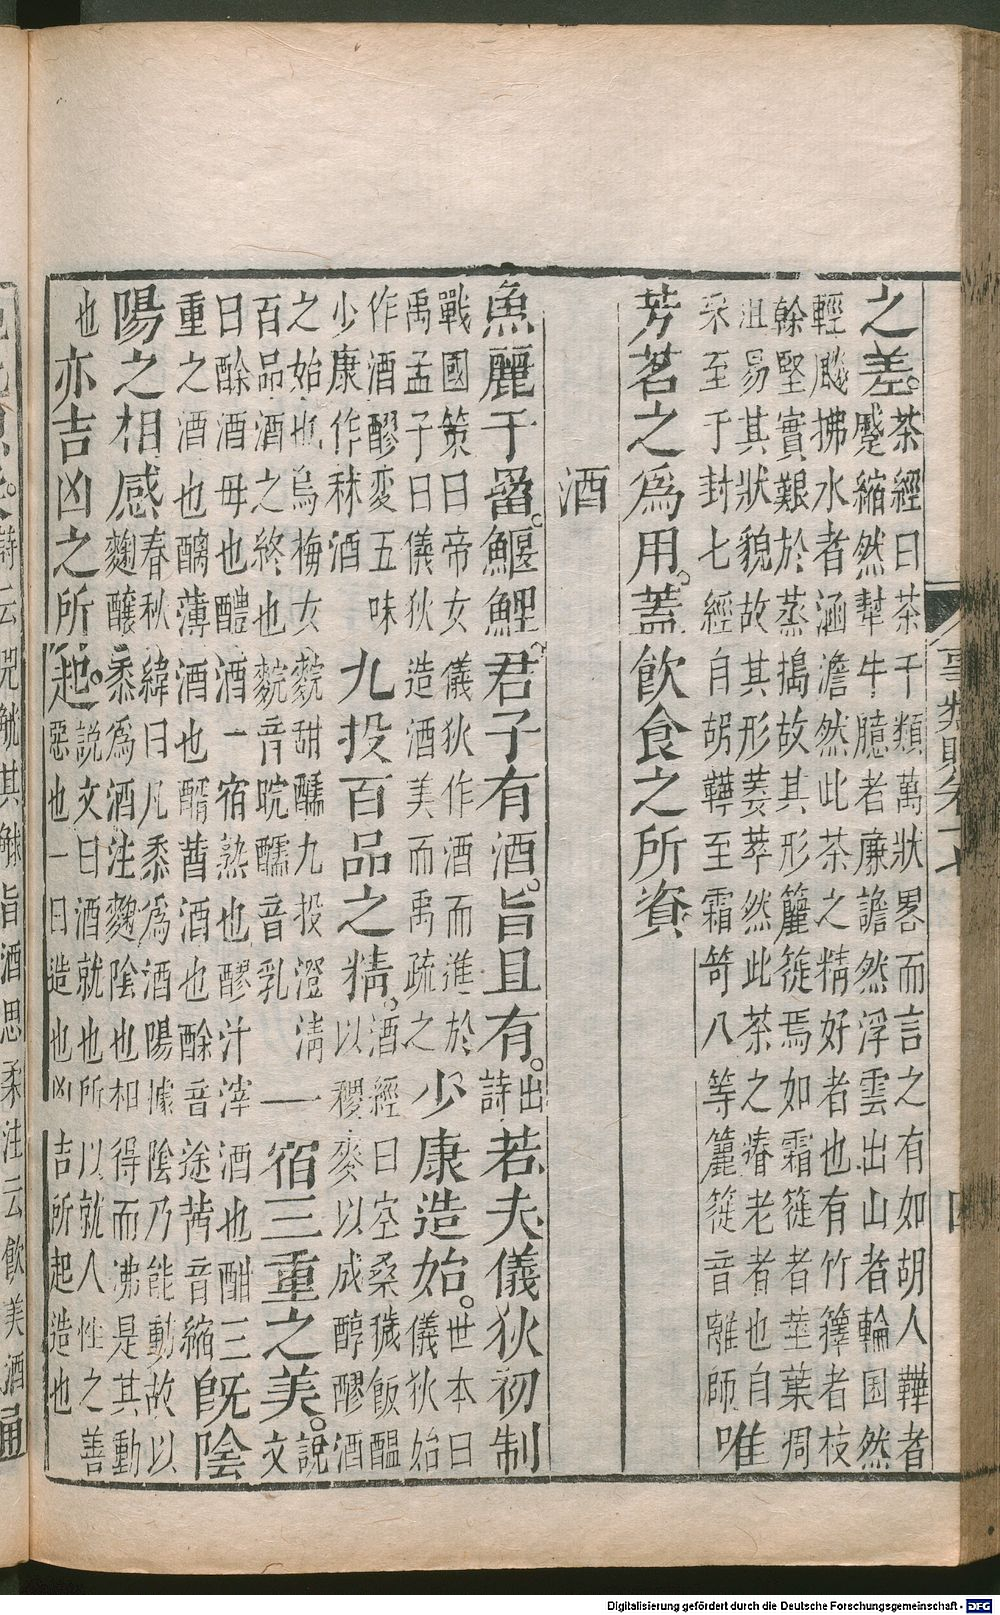 事類賦卷十七 四
之差。茶經曰茶千類萬狀畧而言之有如胡人鞾者
蹙縮然犎牛臆者廉襜然浮雲出山者輪囷然
輕飈拂水者涵澹然此茶之精好者也有竹籜者枝
簳堅實艱於蒸搗故其形籭簁焉如霜簁者莖葉凋
沮易其狀貌故其形萎萃然此茶之瘠老者也自
采至于封七經自胡鞾至霜笴八等籭簁音離師唯
芳茗之為用。蓋飲食之所資
酒
魚麗于罶。鰋鯉。君子有酒。旨且有。出詩若夫儀狄初制
戰國策曰帝女儀狄作酒而進於
禹孟子曰儀狄造酒美而禹疏之少康造始。世本曰
儀狄始
作酒醪変五味
少康作秫酒九投百品之精。酒經曰空桑穢飯醖
以稷麥以成醇醪酒
之始也烏梅女䴷甜醹九投澄淸
百品酒之終也䴷音晥醹音乳一宿三重之美。說
文
曰酴酒母也醴酒一宿熟也醪汁滓酒也酎三
重之酒也醨薄酒也醑莤酒也酴音途莤音縮既陰
陽之相感春秋緯曰凡黍為酒陽據陰乃能動故以
麴釀黍為酒注麴陰也相得而沸是其動
也亦吉凶之所起。說文曰酒就也所以就人性之善
惡也一曰造也凶吉所起造也
詩云兕觥其觩旨酒思柔注云飲美酒通
Digitalisierung gefördert durch die Deutsche Forschungsgemeinschaft - DFG